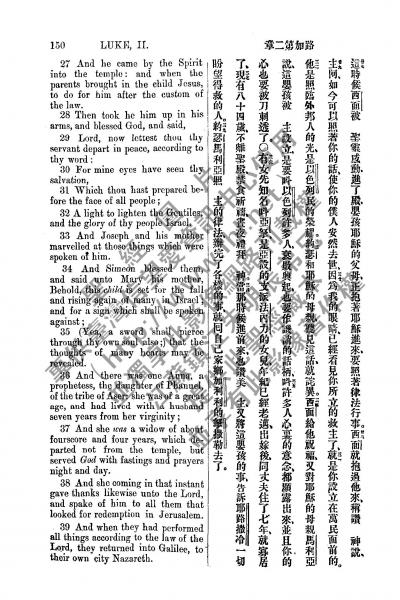 150 LUKE, II. 路加第二章
27 And he came by the Spirit
into the temple: and when the
parents brought in the child Jesus,
to do for him after the custom of
the law.
28 Then took he him up in his
arms, and blessed God, and said,
29 Lord, now lettest thou thy
servant depart in peace, according
to thy word:
30 For mine eyes have seen thy
salvation,
31 Which thou hast prepared be-
fore the face of all people;
32 A light to lighten the Gentiles,
and the glory of thy people Israel.
33 And Joseph and his mother
marvelled at those things which were
spoken of him.
34 And Simeon blessed them,
and said unto Mary his mother,
Behold, this child is set for the fall
and rising again of many in Israel;
and for a sign which shall be spoken
against;
35 (Yea, a sword shall pierce
through thy own soul also;) that the
thoughts of many hearts may be
revealed.
36 And there was one Anna, a
prophetess, the daughter of Phanuel,
of the tribe of Aser: she was of a great
age, and had lived with a husband
seven years from her virginity;
37 And she was a widow of about
fourscore and four years, which de-
parted not from the temple, but
served God with fastings and prayers
night and day.
38 And she coming in that instant
gave thanks likewise unto the Lord,
and spake of him to all them that
looked for redemption in Jerusalem.
39 And when they had performed
all things according to the law of the
Lord, they returned into Galilee, to
their own city Nazareth.
這時候西面被 聖靈感動進了殿嬰孩耶穌的父母正抱著耶穌進來要照著律法行事。西面就抱過他來稱讚 神說、
主阿、如今可以照著你的話使你的僕人安然去世因為我的眼睛已經看見你所立的救主了就是你設立在萬民面前的
他是照臨外邦人的光是以色列民的榮耀約瑟和耶穌的母親聽見這話就詫異西面給他就福又對耶穌的母親馬利亞
說這嬰孩被 主設立是要叫以色列許多人衰敗興起也要作譏誚的話柄叫許多人心裏的意念都顯露出來並且你的
心也要被刀刺透了○有女先知名叫亞拿是亞設的支派法內力的女兒年紀已經老邁出嫁後同丈夫住了七年就寡居
了、現有八十四歲不離聖殿禁食祈禱晝夜禮拜 神當那時候進前來也讚美 主又將這嬰孩的事告訴耶路撒冷一切
盼望得救的人。約瑟馬利亞照 主的律法辦完了各樣的事就回自己家鄉加利利的拿撒勒去了。